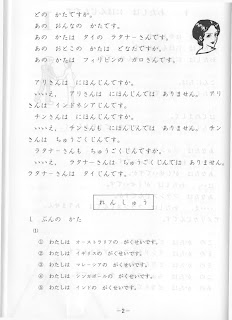 どの　かたですか。
あの　おんなの　かたです。
あの　おんなの　かたは　タイの　ラタナーさんです。
あの　おとこの　かたは　どなたですか。
あの　かたは　フィリピンの　ガロさんです。
アリさんは　にほんじんですか。
いいえ、　アリさんは　にほんじんでは　ありません。　アリ
さんは　インドネシアじんです。
チンさんは　にほんじんですか。
いいえ、　チンさんも　にほんじんでは　ありません。　チン
さんは　ちゅうごくじんです。
ラタナーさんも　ちゅうごくじんですか。
いいえ、　ラタナーさんは　ちゅうごくじんでは　ありません。
ラタナーさんは　タイじんです。
れんしゅう
1．ぶんの　かた
(1)
①　わたしは　オーストラリアの　がくせいです。
②　わたしは　イギリスの　がくせいです。
③　わたしは　マレーシアの　がくせいです。
④　わたしは　シンガポールの　がくせいです。
⑤　わたしは　インドの　がくせいです。
－2－